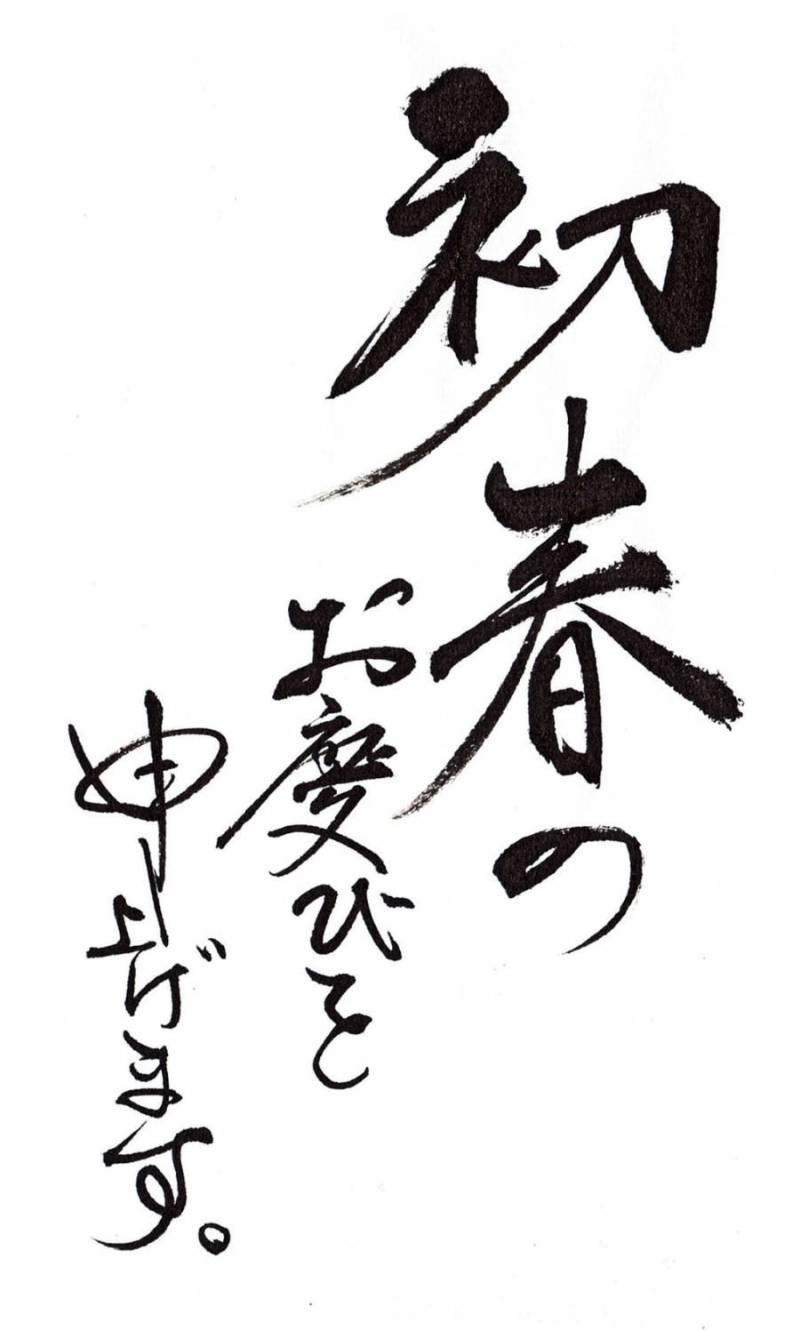 初春の
お慶びを
申上げます。